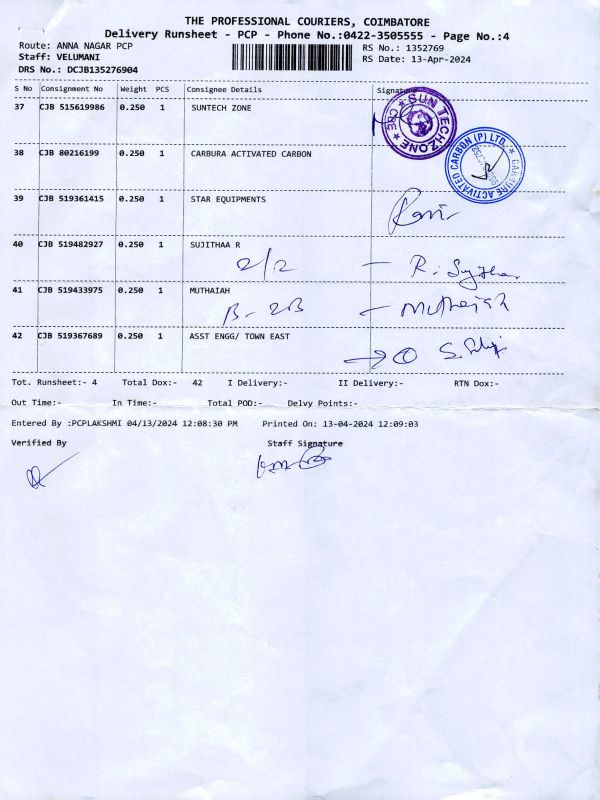 THE PROFESSIONAL COURIERS, COIMBATORE
Delivery Runsheet - PCP - Phone No.:0422-3505555 - Page No.:4
Route: ANNA NAGAR PCP RS No.: 1352769
Staff: VELUMANI RS Date: 13-Apr-2024
DRS No.: DCJB135276904
S No Consignment No Weight PCS Consignee Details Signature
37 CJB 515619986 0.250 1 SUNTECH ZONE
SUN TECHZONE CBE
38 CJB 80216199 0.250 1 CARBURA ACTIVATED CARBON
ACTIVATED CARBON (P) LTD.
39 CJB 519361415 0.250 1 STAR EQUIPMENTS
Ravi
40 CJB 519482927 0.250 1 SUJITHAA R
2/2 - R. Sujithaa
41 CJB 519433975 0.250 1 MUTHAIAH
B- 2B - Muthaiah
42 CJB 519367689 0.250 1 ASST ENGG/ TOWN EAST
Tot. Runsheet:- 4 Total Dox:- 42 I Delivery:- II Delivery:- RTN Dox:-
Out Time:- In Time:- Total POD:- Delvy Points:-
Entered By :PCPLAKSHMI 04/13/2024 12:08:30 PM Printed On: 13-04-2024 12:09:03
Verified By Staff Signature